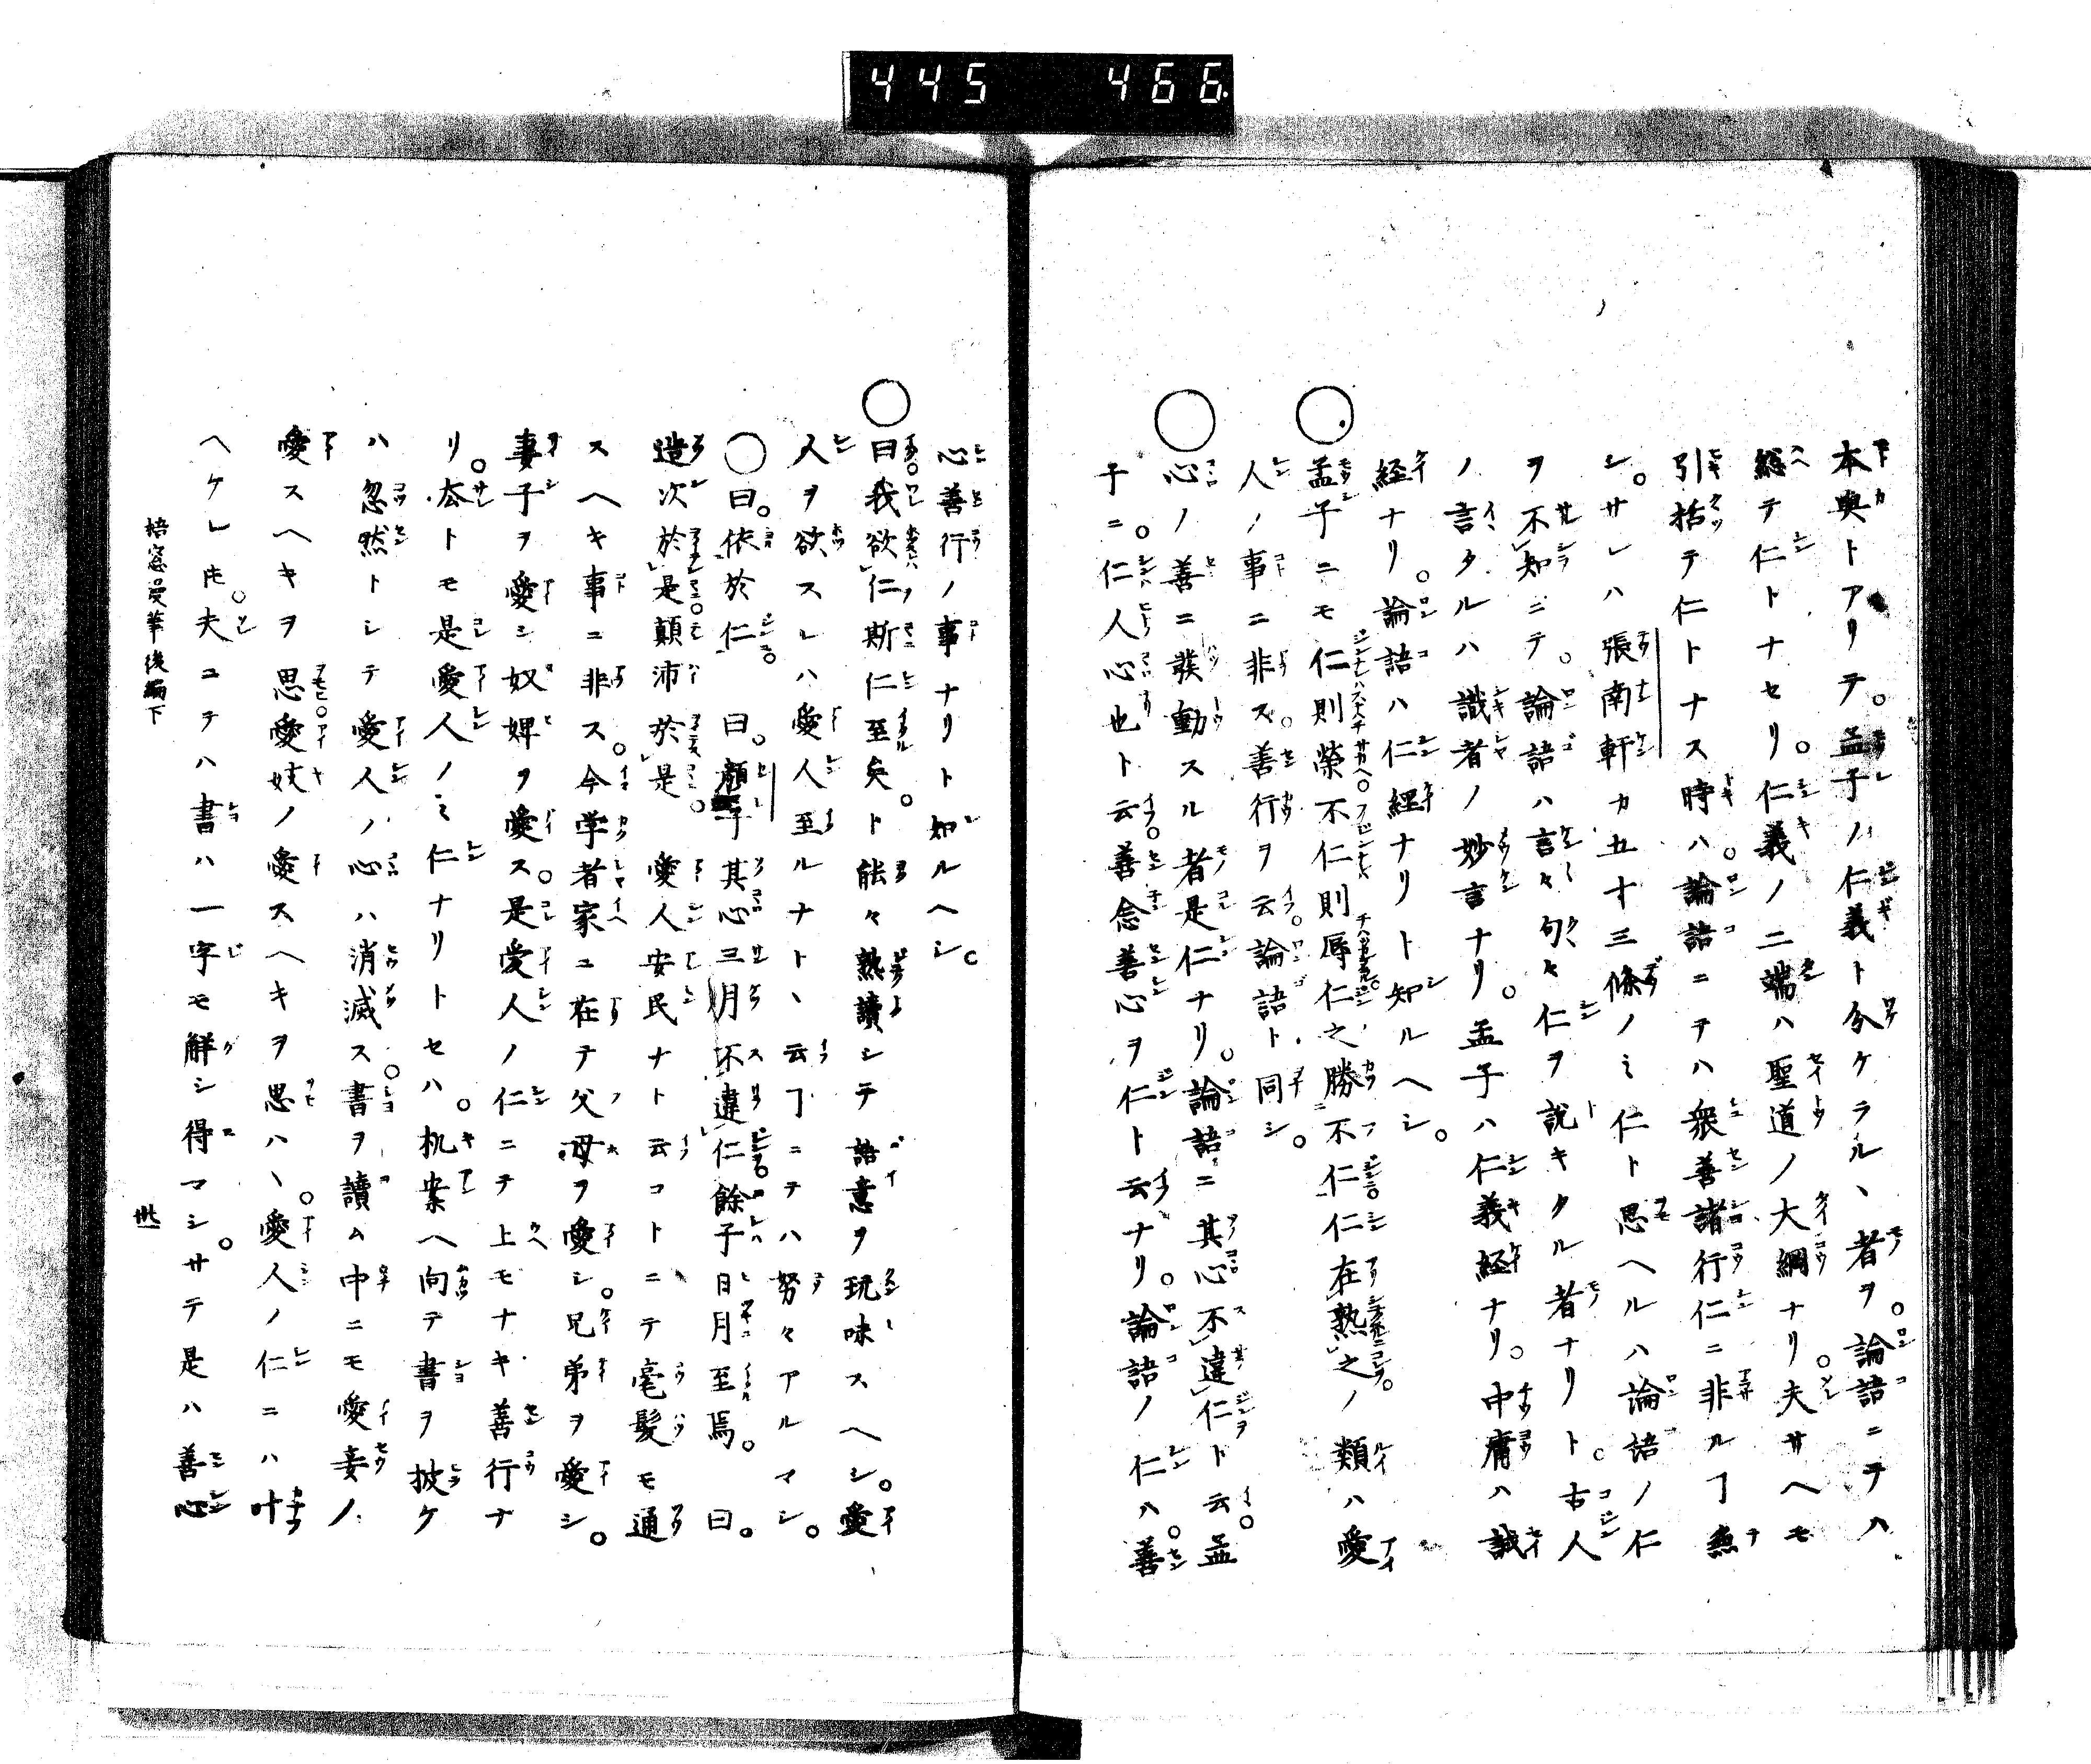 445 466
本與トアリテ。孟子ノ仁義ト分ケラル、者ヲ。論語ニテハ
総テ仁トナセリ。仁義ノ二端ハ聖道ノ大綱ナリ。夫サヘモ
引括テ仁トナス時ハ。論語ニテハ衆善諸行仁ニ非ルヿ無
シ。サレハ張南軒カ五十三條ノミ仁ト思ヘルハ論語ノ仁
ヲ不知ニテ。論語ハ言々句々仁ヲ説キタル者ナリト。古人
ノ言タルハ識者ノ妙言ナリ。孟子ハ仁義経ナリ。中庸ハ誠
経ナリ。論語ハ仁經ナリト知ルヘシ。
○孟子ニモ仁則榮不仁則辱仁之勝不仁仁在熟之ノ類ハ愛
人ノ事ニ非ス。善行ヲ云。論語ト同シ。
○心ノ善ニ發動スル者是仁ナリ。論語ニ其心不違仁ト云。孟
子ニ。仁人心也ト云。善念善心ヲ仁ト云ナリ。論語ノ仁ハ。善
心善行ノ事ナリト知ルヘシ。
○曰。我欲仁斯仁至矣。ト能々熟讀シテ語意ヲ玩味スヘシ。愛
人ヲ欲スレハ愛人至ルナト、云ヿニテハ努々アルマシ。
○曰。依於仁。曰。顔子其心三月不違仁。餘子日月至焉。曰。
造次於是顛沛於是。愛人安民ナト云コトニテ毫髪モ通
スヘキ事ニ非ス。今学者家ニ在テ父母ヲ愛シ。兄弟ヲ愛シ。
妻子ヲ愛シ奴婢ヲ愛ス。是愛人ノ仁ニテ上モナキ善行ナ
リ。厺トモ是愛人ノミ仁ナリトセハ。机案ヘ向テ書ヲ披ケ
ハ忽然トシテ愛人ノ心ハ消滅ス。書ヲ讀ム中ニモ愛妾ノ
愛スヘキヲ思愛妓ノ愛スヘキヲ思ハヽ。愛人ノ仁ニハ叶
ヘケレ𪜈。夫ユテハ書ハ一字モ解シ得マシ。サテ是ハ善心
梧窓漫筆後編下
卅一